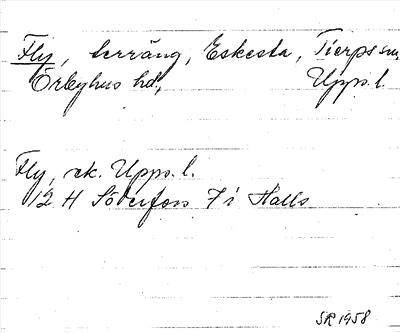 Fly, terräng, Eskesta, Tierps sn,
Örbyhus hd, Upps. l.
Fly, ek. Upps. l.
12 H Söderfors 7 i Halls
SR 1958